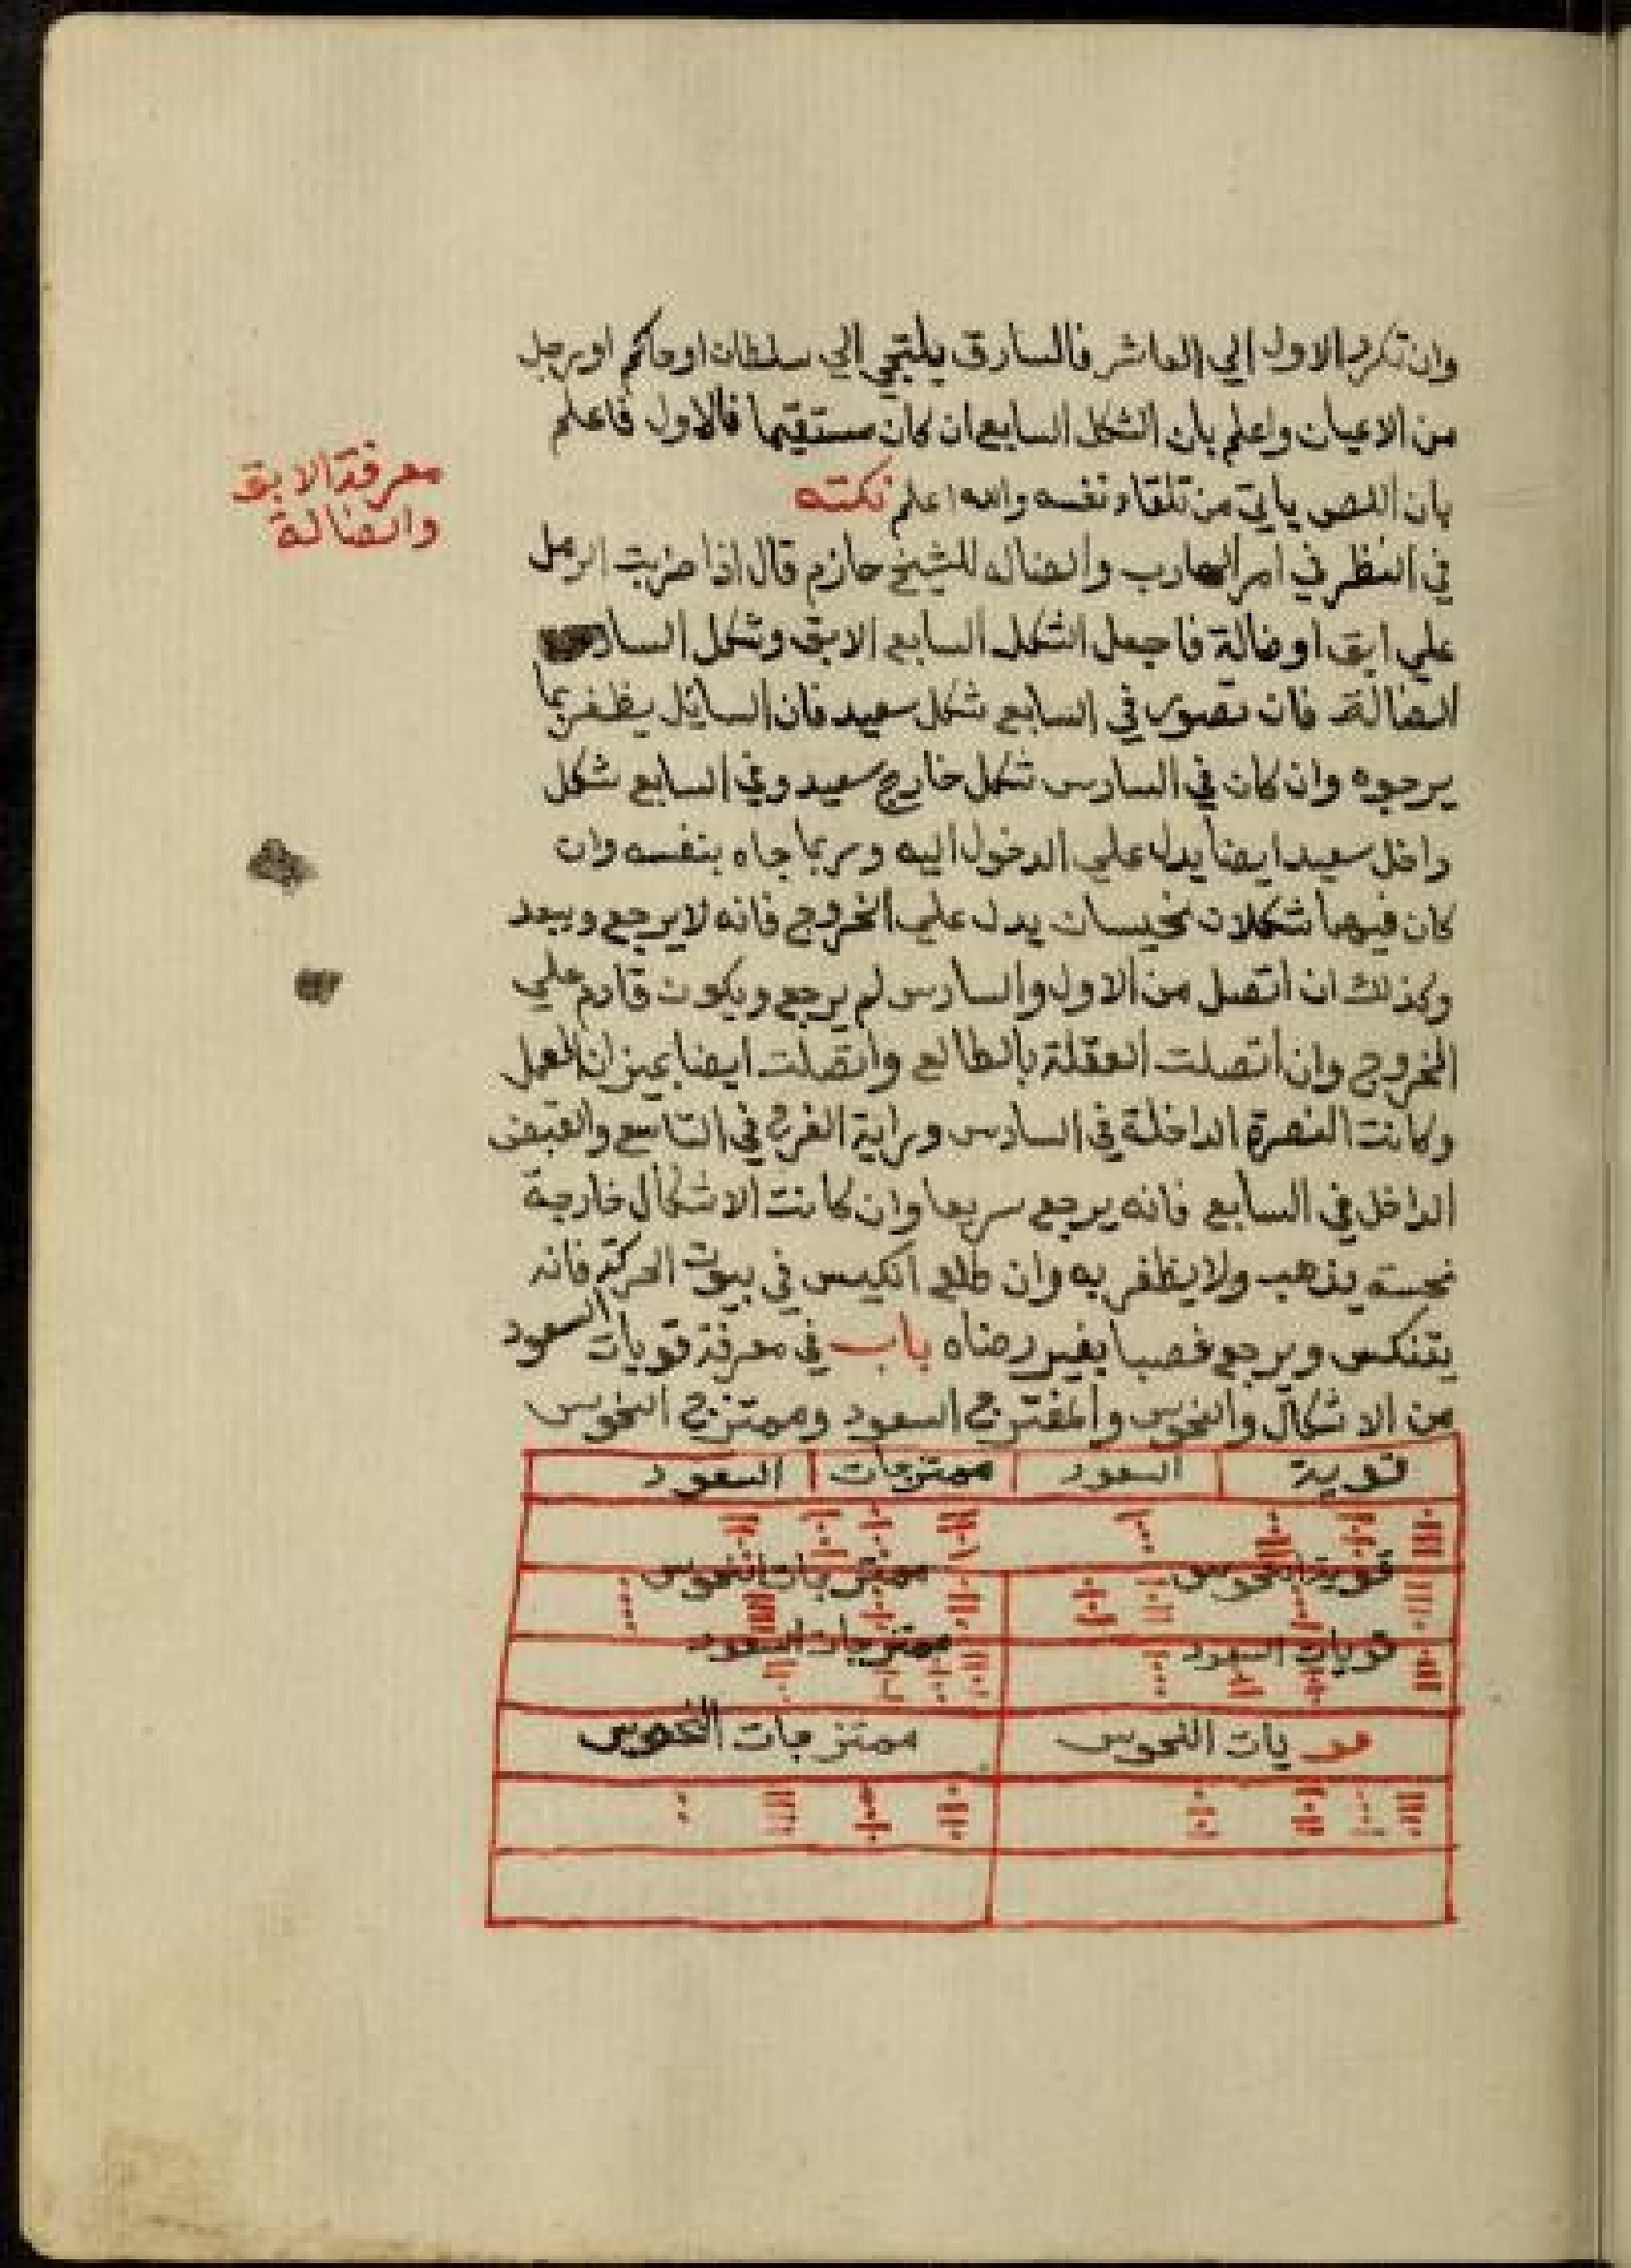 وان تكرر الاول الي العاشر فالسارق يلتجي الي سلطان اوحاكم اورجل
من الاعيان واعلم بان الشكل السابع ان كان مستقيما فالاول فاعلم
بان اللص ياتي من تلقاء نفسه والله اعلم نكته
معرفة الابق
والضالة
في النظر في امر الهارب والضاله للشيخ حازم قال اذا ضربت الرمل
علي ابق او ضالة فاجعل الشكل السابع الابق وشكل السادس
الضالة فان تصور في السابع شكل سعيد فان السايل يظفر بما
يرجوه وان كان في السادس شكل خارج سعيد وفي السابع شكل
داخل سعيد ايضا يدل علي الدخول اليه وربما جاه بنفسه وان
كان فيهما شكلان نحيسان يدل علي الخروج فانه لا يرجع ويبعد
وكذلك ان اتصل من الاول والسادس لم يرجع ويكون قادم علي
الخروج وان اتصلت العقلة بالطالع واتصلت ايضا بميزان العمل
وكانت النصرة الداخلة في السادس وراية الفرح في التاسع والقبض
الداخل في السابع فانه يرجع سريعا وان كانت الاشكال خارجة
نحسته يذهب ولا يظفر به وان طلع انكيس في بيوت الحركة فانه
يتنكس ويرجع غصبا بغير رضاه باب في معرفة قويات السعود
من الاشكال والنحوس والمفترج السعود وممتزج النحوس
قوية السعود ممتزجات السعود
قوية النحوس ممتزجات النحوس
قويات السعود ممتزجات السعود
قويات النحوس ممتزجات النحوس